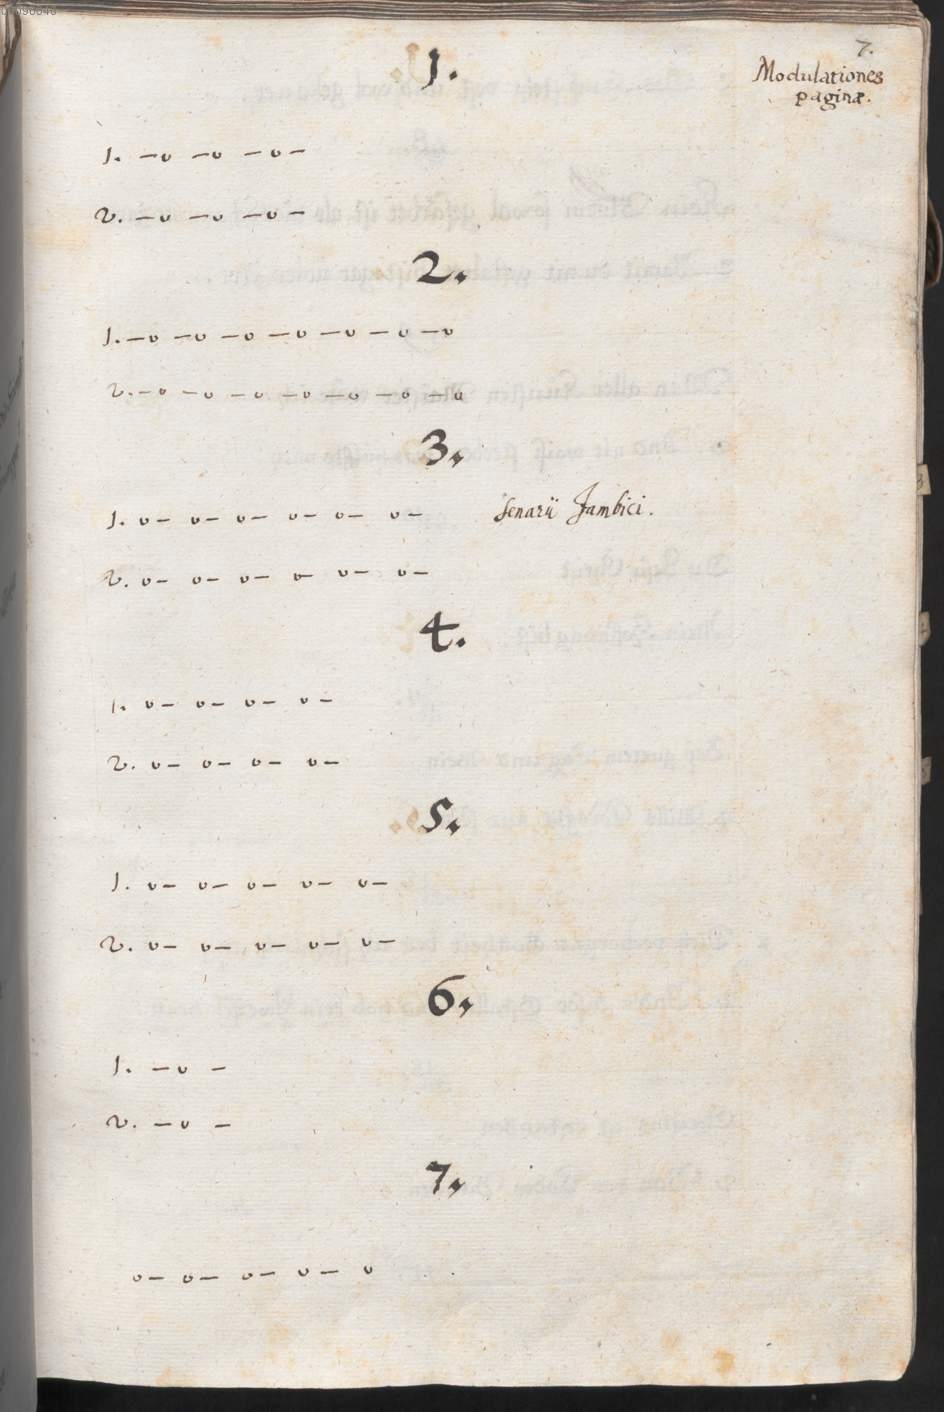 7.
Modulationes
paginæ.
1.
1. –υ –υ –υ–
2. –υ –υ –υ–
2.
1. –υ –υ –υ –υ –υ –υ –υ
2. –υ –υ –υ –υ –υ –υ –υ
3.
1. υ– υ– υ– υ– υ– υ– Senarii Jambici.
2. υ– υ– υ– υ– υ– υ–
4.
1. υ– υ– υ– υ–
2. υ– υ– υ– υ–
5.
1. υ– υ– υ– υ– υ–
2. υ– υ– υ– υ– υ–
6.
1. –υ –
2. –υ –
7.
υ– υ– υ– υ– υ